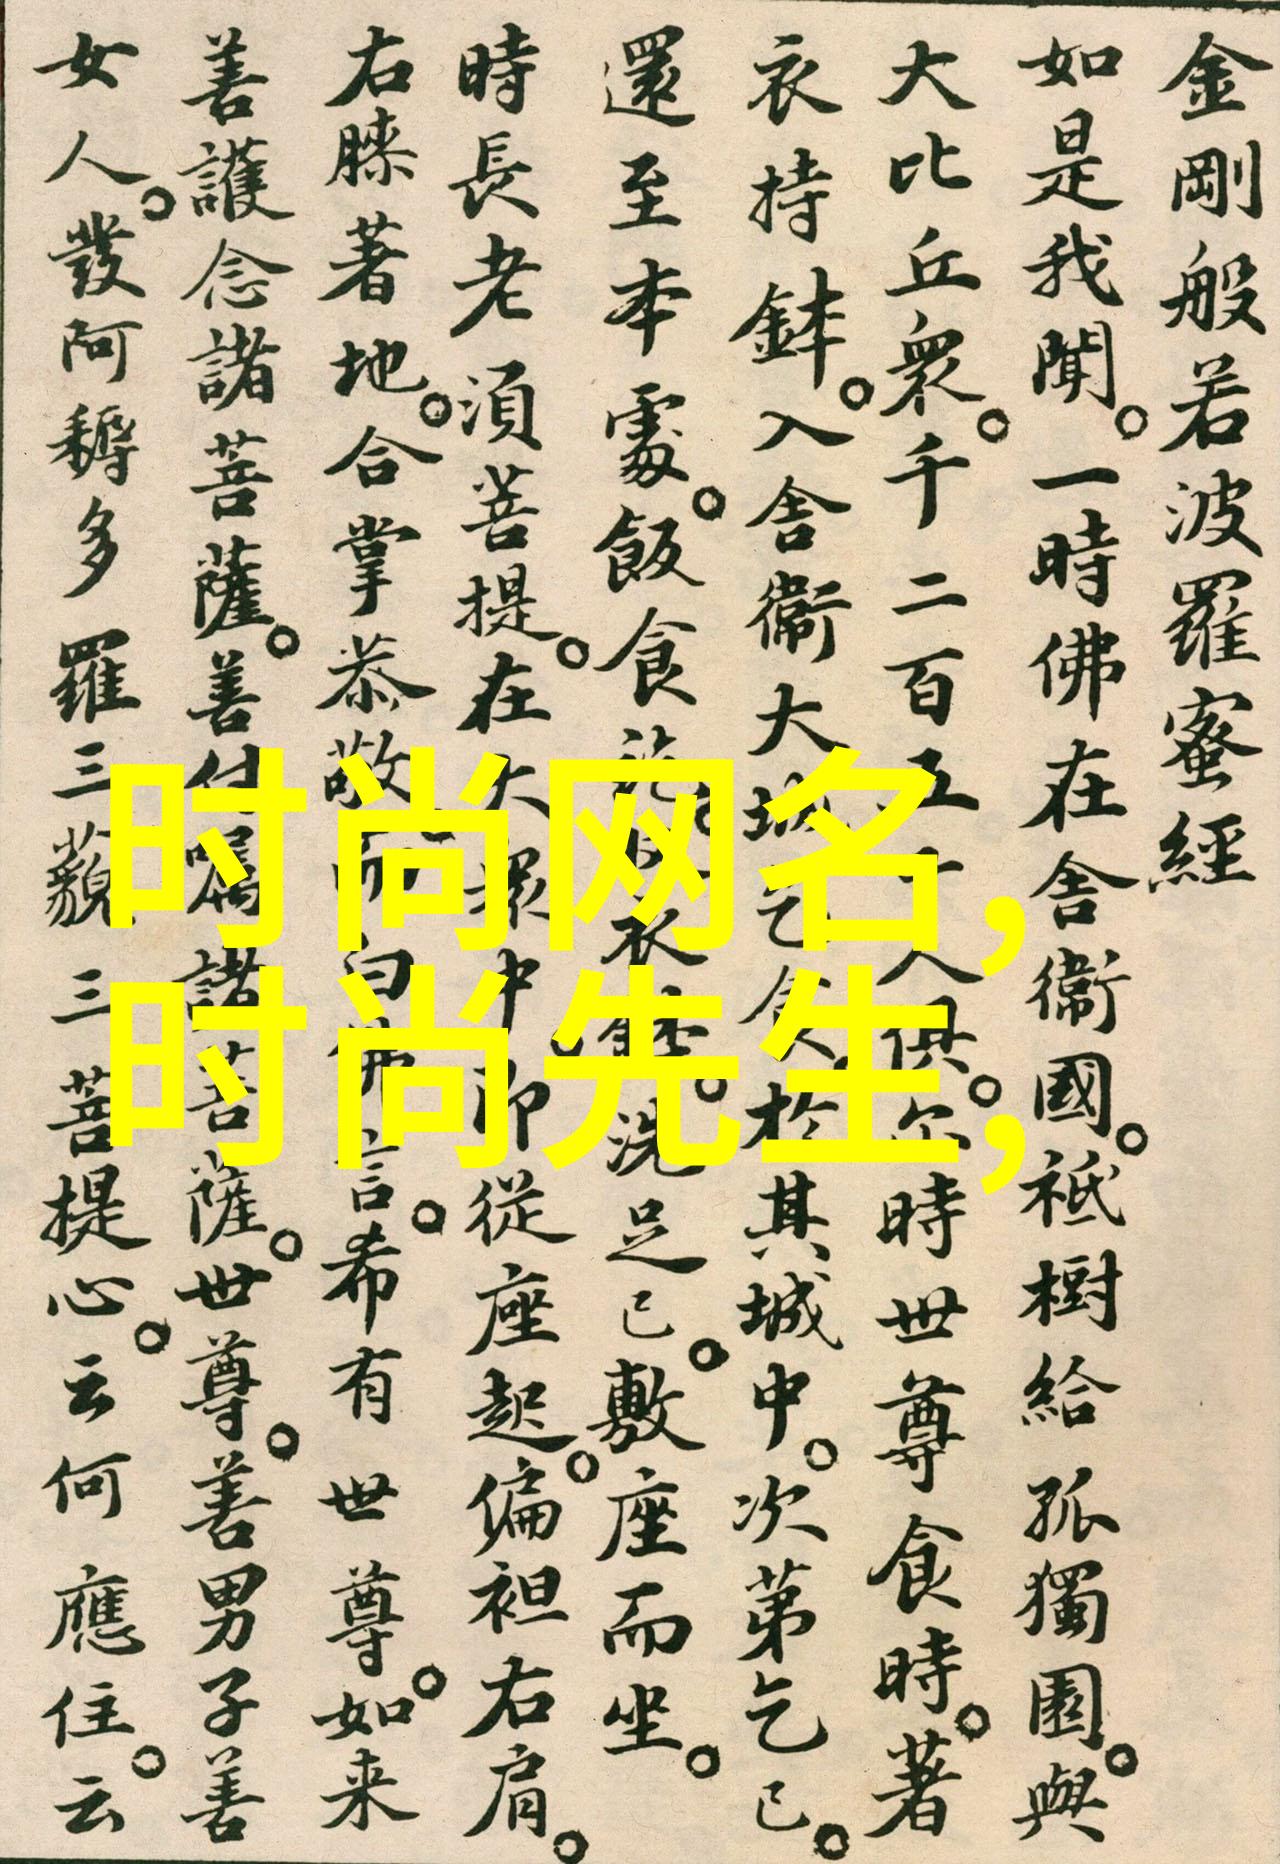 金剛般若波羅蜜經
如是我聞。一時佛在舍衞國。祗樹給孤獨園。與
大比丘衆。千二百五十人俱。尒時世尊食時。著
衣持鉢。入舍衞大城乞食。於其城中。次第乞已。
還至本處。飯食訖。收衣鉢。洗足已。敷座而坐。
時長老須菩提。在大眾中。即從座起。偏袒右肩。
右膝著地。合掌恭敬。而白佛言。希有世尊。如来
善護念諸菩薩。善付囑諸菩薩。世尊。善男子善
女人。發阿耨多羅三藐三菩提心。云何應住。云
时尚网名,
时尚先生,